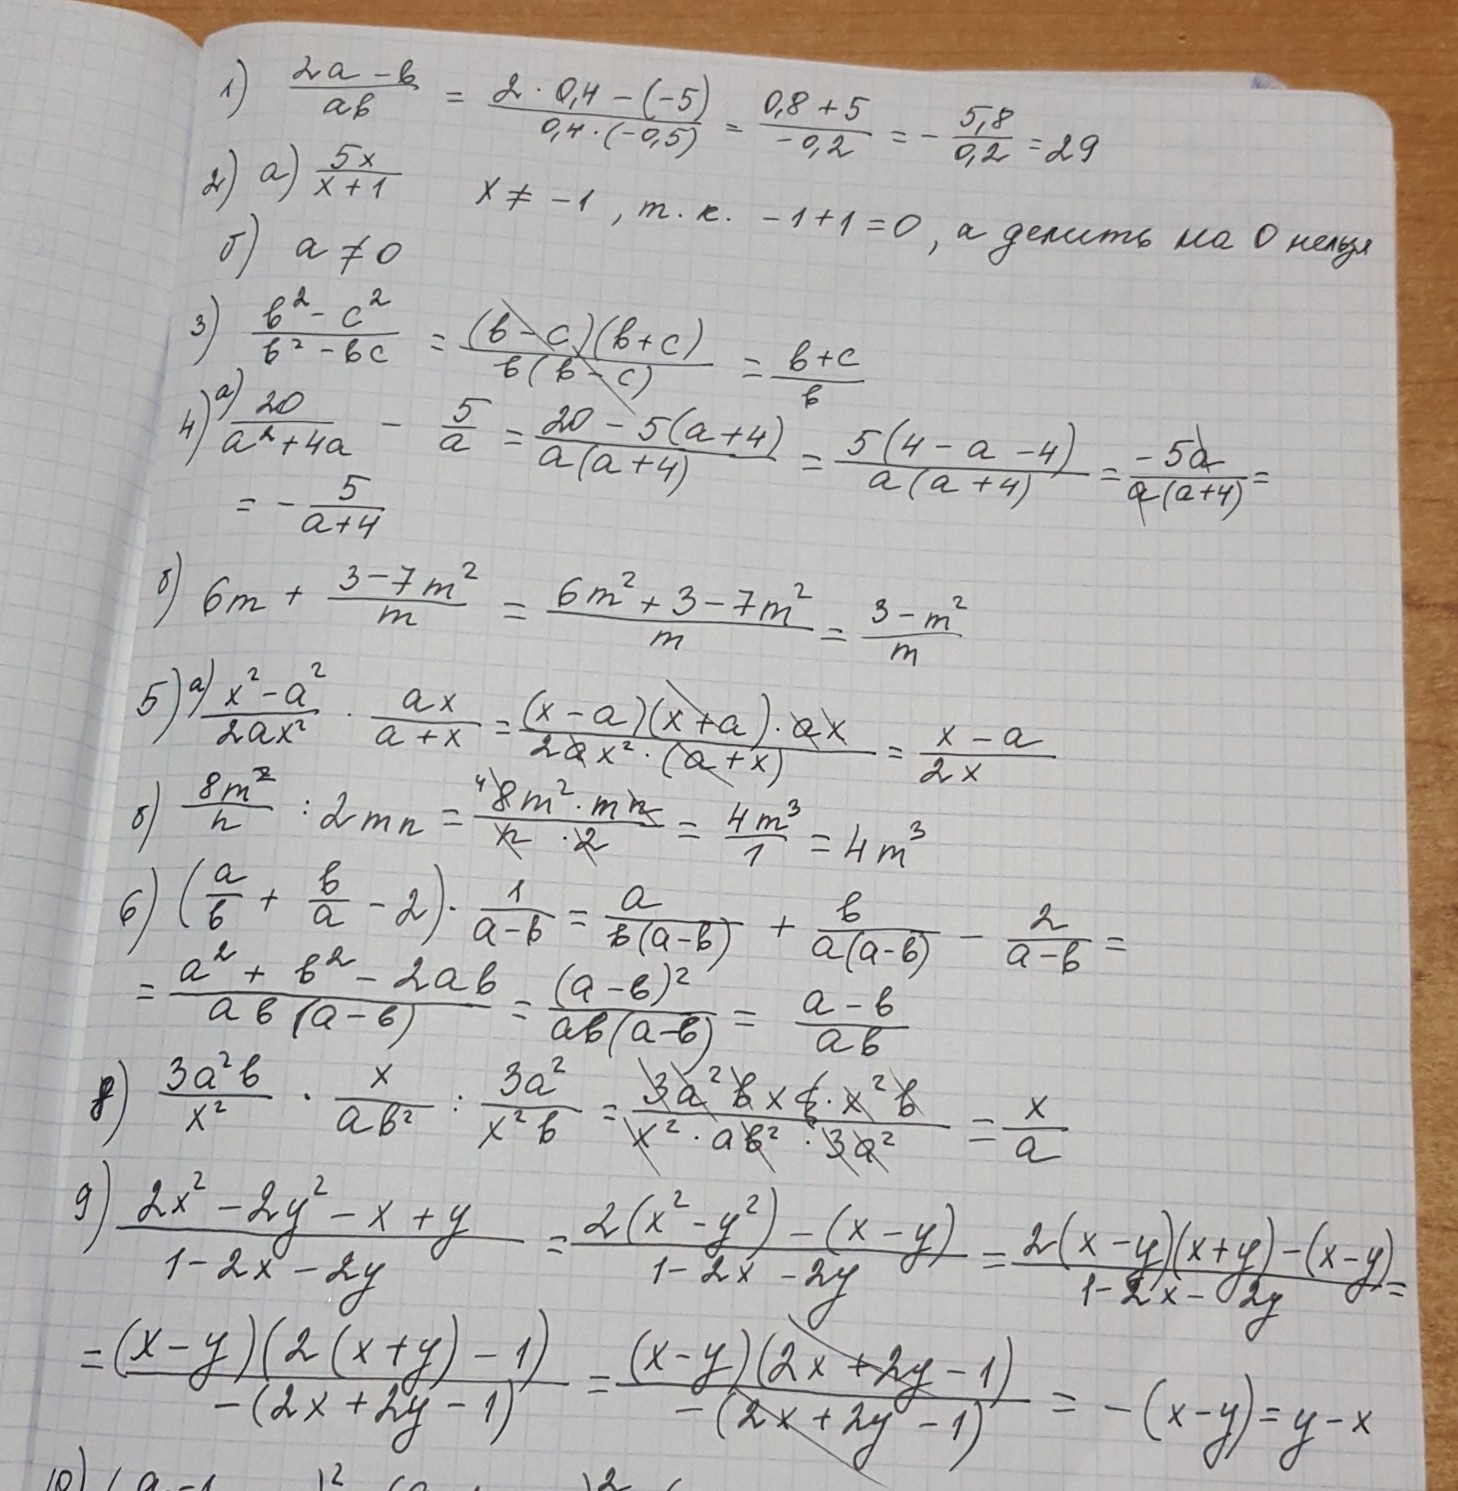 1) (2a - b)/(ab) = (2 · 0,4 - (-5))/(0,4 · (-0,5)) = (0,8 + 5)/(-0,2) = - 5,8/0,2 = 29
2) а) 5x/(x + 1) x ≠ -1, т. к. -1 + 1 = 0, а делить на 0 нельзя
б) a ≠ 0
3) (b² - c²)/(b² - bc) = ((b - c)(b + c))/(b(b - c)) = (b + c)/b
4) а) 20/(a² + 4a) - 5/a = (20 - 5(a + 4))/(a(a + 4)) = (5(4 - a - 4))/(a(a + 4)) = (-5a)/(a(a + 4)) =
= - 5/(a + 4)
б) 6m + (3 - 7m²)/m = (6m² + 3 - 7m²)/m = (3 - m²)/m
5) а) (x² - a²)/(2ax²) · (ax)/(a + x) = ((x - a)(x + a) · ax)/(2ax² · (a + x)) = (x - a)/(2x)
б) 8m²/n : 2mn = (4 8m² · mn)/(n · 2) = 4m³/1 = 4m³
6) (a/b + b/a - 2) · 1/(a - b) = a/(b(a - b)) + b/(a(a - b)) - 2/(a - b) =
= (a² + b² - 2ab)/(ab(a - b)) = (a - b)²/(ab(a - b)) = (a - b)/(ab)
8) 3a²b/x² · x/(ab²) : 3a²/(x²b) = (3a²b x · x²b)/(x² · ab² · 3a²) = x/a
9) (2x² - 2y² - x + y)/(1 - 2x - 2y) = (2(x² - y²) - (x - y))/(1 - 2x - 2y) = (2(x - y)(x + y) - (x - y))/(1 - 2x - 2y) =
= ((x - y)(2(x + y) - 1))/(-(2x + 2y - 1)) = ((x - y)(2x + 2y - 1))/(-(2x + 2y - 1)) = -(x - y) = y - x
10)